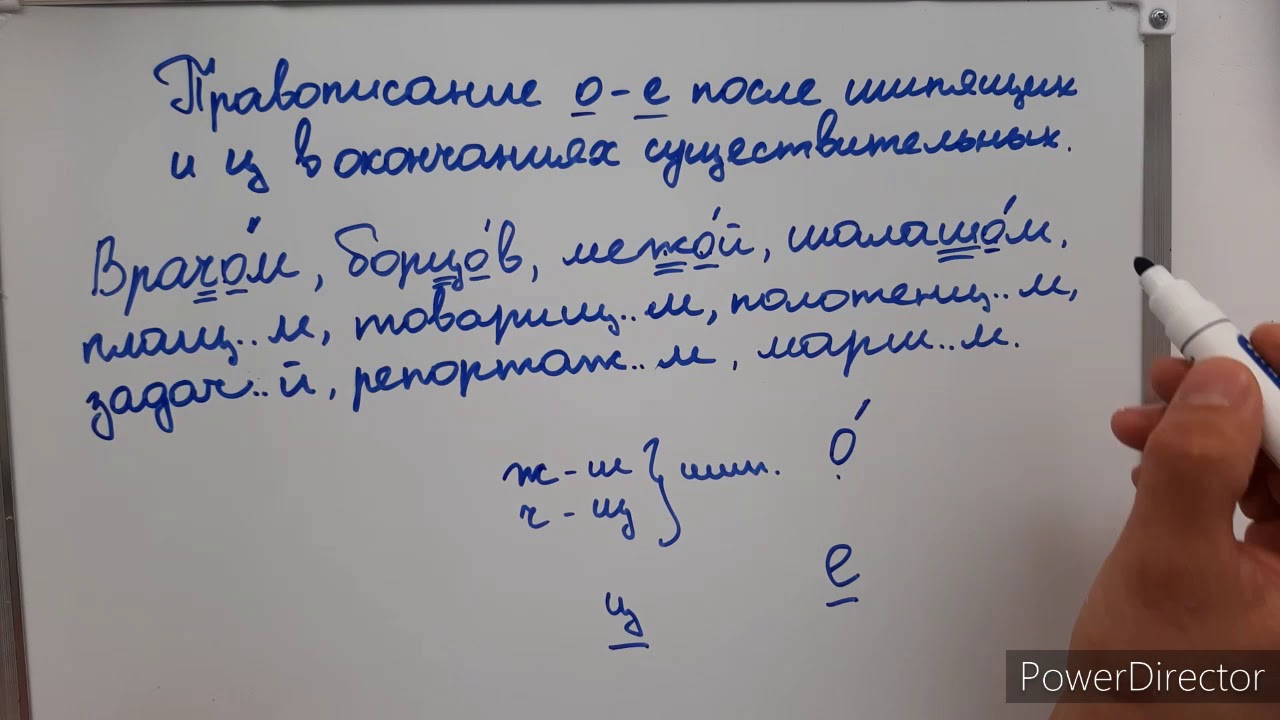 Правописание о-е после шипящих
и ц в окончаниях существительных.
Врачо́м, борцо́в, межо́й, шалашо́м,
плащ..м, товарищ..м, полотенц..м,
задач..й, репортаж..м, марш..м.
ж-ш } шип. о́
ч-щ
е
ц
PowerDirector